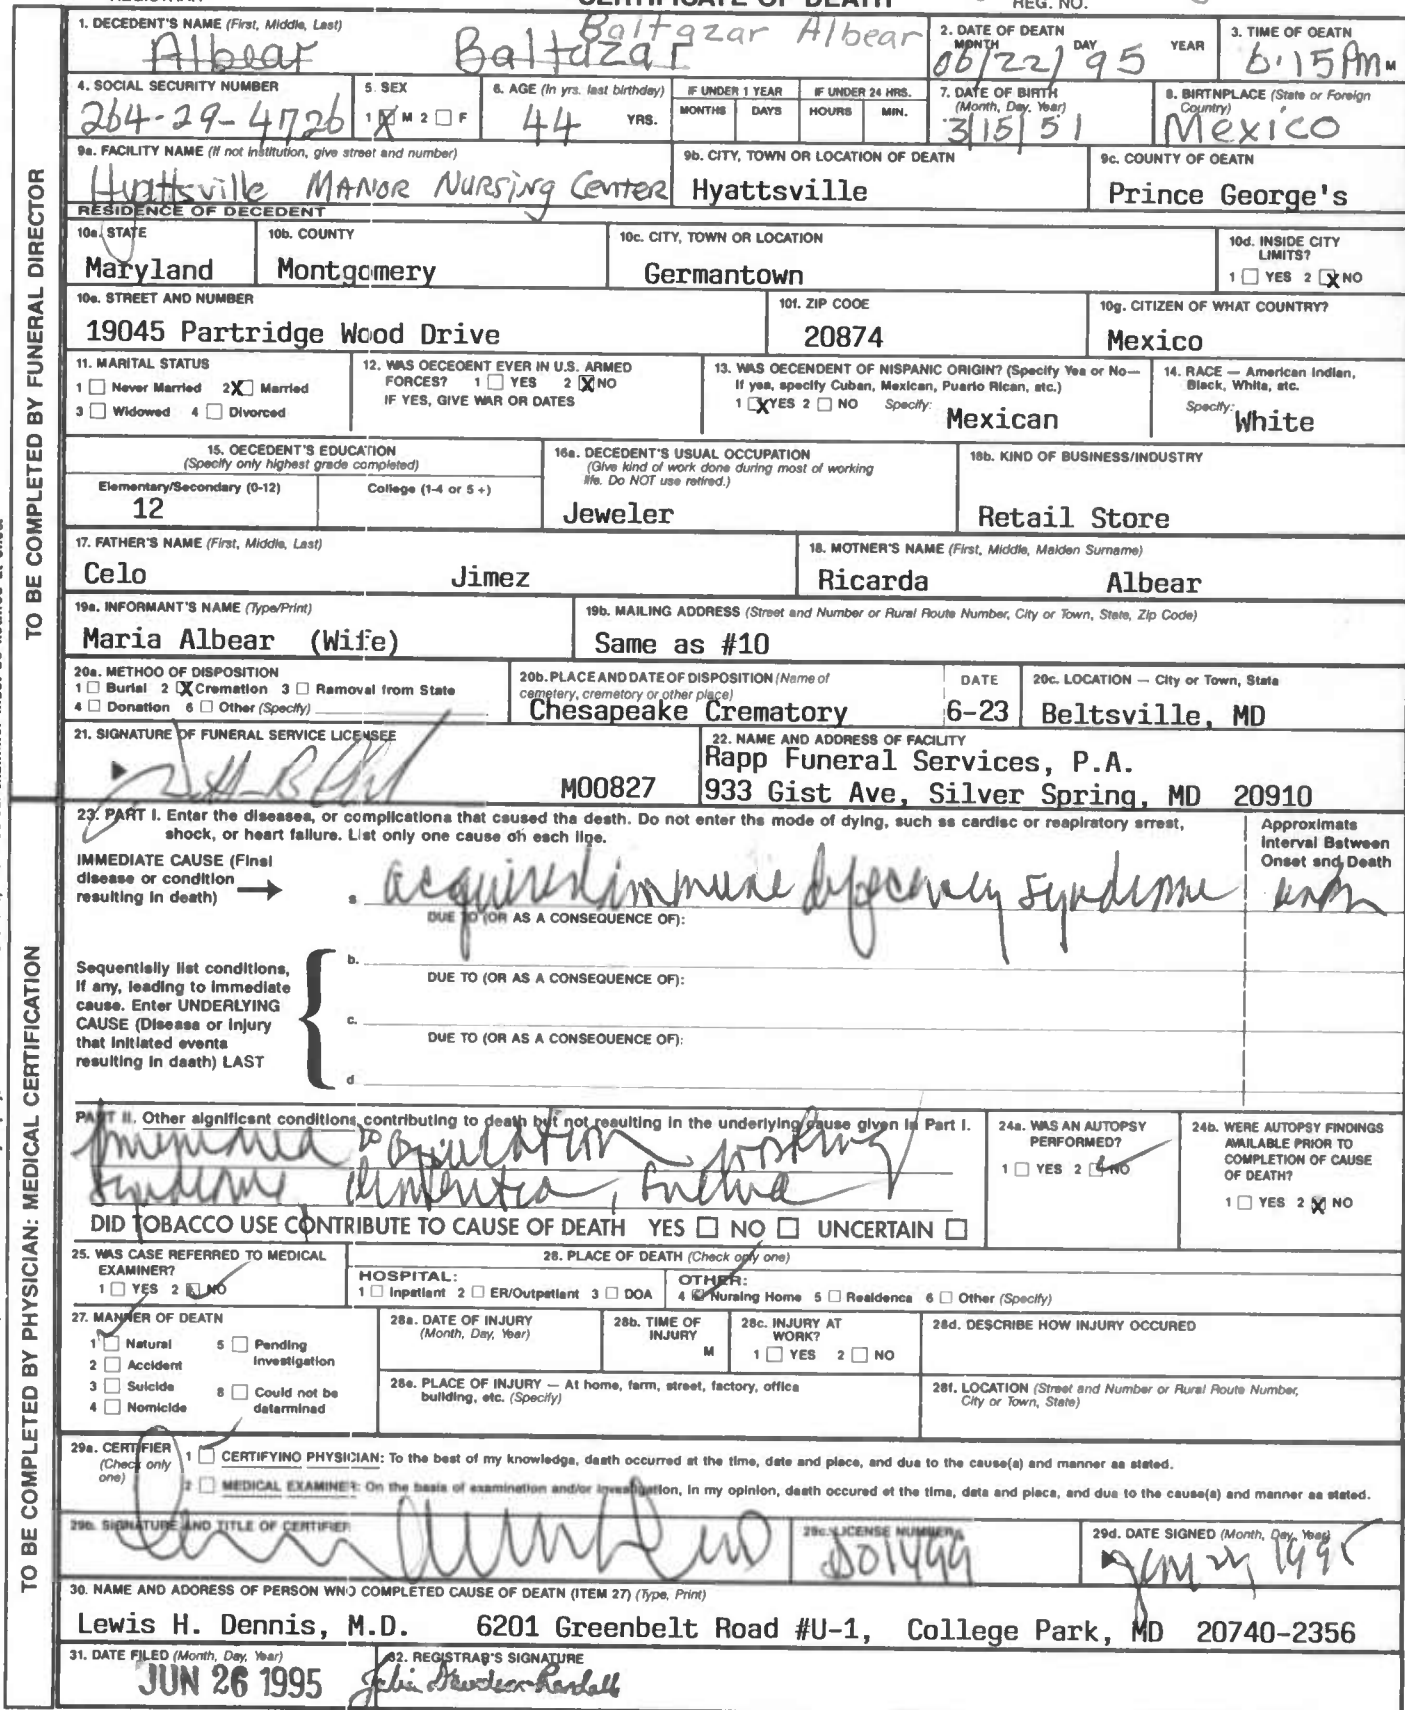 CERTIFICATE OF DEATH
REG. NO.
1. DECEDENT'S NAME (First, Middle, Last)
Baltazar Albear
Albear Baltazar
2. DATE OF DEATH
MONTH DAY YEAR
06/22/95
3. TIME OF DEATH
6:15 PM M
4. SOCIAL SECURITY NUMBER
264-29-4726
5. SEX
1 X M 2 □ F
6. AGE (In yrs. last birthday)
44 YRS.
IF UNDER 1 YEAR
MONTHS DAYS
IF UNDER 24 HRS.
HOURS MIN.
7. DATE OF BIRTH
(Month, Day, Year)
3/15/51
8. BIRTHPLACE (State or Foreign
Country)
Mexico
9a. FACILITY NAME (If not institution, give street and number)
Hyattsville MANOR NURSING CENTER
9b. CITY, TOWN OR LOCATION OF DEATH
Hyattsville
9c. COUNTY OF DEATH
Prince George's
RESIDENCE OF DECEDENT
10a. STATE
Maryland
10b. COUNTY
Montgomery
10c. CITY, TOWN OR LOCATION
Germantown
10d. INSIDE CITY
LIMITS?
1 □ YES 2 X NO
10e. STREET AND NUMBER
19045 Partridge Wood Drive
10f. ZIP CODE
20874
10g. CITIZEN OF WHAT COUNTRY?
Mexico
11. MARITAL STATUS
1 □ Never Married 2 X Married
3 □ Widowed 4 □ Divorced
12. WAS DECEDENT EVER IN U.S. ARMED
FORCES? 1 □ YES 2 X NO
IF YES, GIVE WAR OR DATES
13. WAS DECENDENT OF HISPANIC ORIGIN? (Specify Yes or No—
If yes, specify Cuban, Mexican, Puerto Rican, etc.)
1 X YES 2 □ NO Specify: Mexican
14. RACE — American Indian,
Black, White, etc.
Specify: White
15. DECEDENT'S EDUCATION
(Specify only highest grade completed)
Elementary/Secondary (0-12) College (1-4 or 5 +)
12
16a. DECEDENT'S USUAL OCCUPATION
(Give kind of work done during most of working
life. Do NOT use retired.)
Jeweler
16b. KIND OF BUSINESS/INDUSTRY
Retail Store
17. FATHER'S NAME (First, Middle, Last)
Celo Jimez
18. MOTHER'S NAME (First, Middle, Maiden Surname)
Ricarda Albear
19a. INFORMANT'S NAME (Type/Print)
Maria Albear (Wife)
19b. MAILING ADDRESS (Street and Number or Rural Route Number, City or Town, State, Zip Code)
Same as #10
20a. METHOD OF DISPOSITION
1 □ Burial 2 X Cremation 3 □ Removal from State
4 □ Donation 6 □ Other (Specify)
20b. PLACE AND DATE OF DISPOSITION (Name of
cemetery, crematory or other place)
Chesapeake Crematory
DATE
6-23
20c. LOCATION — City or Town, State
Beltsville, MD
21. SIGNATURE OF FUNERAL SERVICE LICENSEE
M00827
22. NAME AND ADDRESS OF FACILITY
Rapp Funeral Services, P.A.
933 Gist Ave, Silver Spring, MD 20910
23. PART I. Enter the diseases, or complications that caused the death. Do not enter the mode of dying, such as cardiac or respiratory arrest,
shock, or heart failure. List only one cause on each line.
Approximate
Interval Between
Onset and Death
IMMEDIATE CAUSE (Final
disease or condition
resulting in death)
a acquired immune deficiency syndrome
DUE TO (OR AS A CONSEQUENCE OF):
b.
DUE TO (OR AS A CONSEQUENCE OF):
c.
DUE TO (OR AS A CONSEQUENCE OF):
d
Sequentially list conditions,
if any, leading to immediate
cause. Enter UNDERLYING
CAUSE (Disease or injury
that initiated events
resulting in death) LAST
PART II. Other significant conditions contributing to death but not resulting in the underlying cause given in Part I.
syndrome dementia,
24a. WAS AN AUTOPSY
PERFORMED?
1 □ YES 2 □ NO
24b. WERE AUTOPSY FINDINGS
AVAILABLE PRIOR TO
COMPLETION OF CAUSE
OF DEATH?
1 □ YES 2 X NO
DID TOBACCO USE CONTRIBUTE TO CAUSE OF DEATH YES □ NO □ UNCERTAIN □
25. WAS CASE REFERRED TO MEDICAL
EXAMINER?
1 □ YES 2 □ NO
26. PLACE OF DEATH (Check only one)
HOSPITAL:
1 □ Inpatient 2 □ ER/Outpatient 3 □ DOA
OTHER:
4 □ Nursing Home 5 □ Residence 6 □ Other (Specify)
27. MANNER OF DEATH
1 □ Natural 5 □ Pending
Investigation
2 □ Accident
3 □ Suicide 8 □ Could not be
determined
4 □ Homicide
28a. DATE OF INJURY
(Month, Day, Year)
28b. TIME OF
INJURY
M
28c. INJURY AT
WORK?
1 □ YES 2 □ NO
28d. DESCRIBE HOW INJURY OCCURED
28e. PLACE OF INJURY — At home, farm, street, factory, office
building, etc. (Specify)
28f. LOCATION (Street and Number or Rural Route Number,
City or Town, State)
29a. CERTIFIER
(Check only
one)
1 □ CERTIFYING PHYSICIAN: To the best of my knowledge, death occurred at the time, date and place, and due to the cause(s) and manner as stated.
2 □ MEDICAL EXAMINER: On the basis of examination and/or investigation, in my opinion, death occured at the time, date and place, and due to the cause(s) and manner as stated.
29b. SIGNATURE AND TITLE OF CERTIFIER
29c. LICENSE NUMBER
D01499
29d. DATE SIGNED (Month, Day, Year)
1995
30. NAME AND ADDRESS OF PERSON WHO COMPLETED CAUSE OF DEATH (ITEM 27) (Type, Print)
Lewis H. Dennis, M.D. 6201 Greenbelt Road #U-1, College Park, MD 20740-2356
31. DATE FILED (Month, Day, Year)
JUN 26 1995
32. REGISTRAR'S SIGNATURE
TO BE COMPLETED BY FUNERAL DIRECTOR
TO BE COMPLETED BY PHYSICIAN: MEDICAL CERTIFICATION